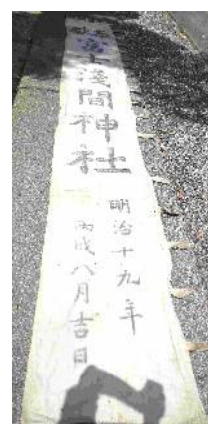 富士浅間神社
明治十九年
丙戌八月吉日